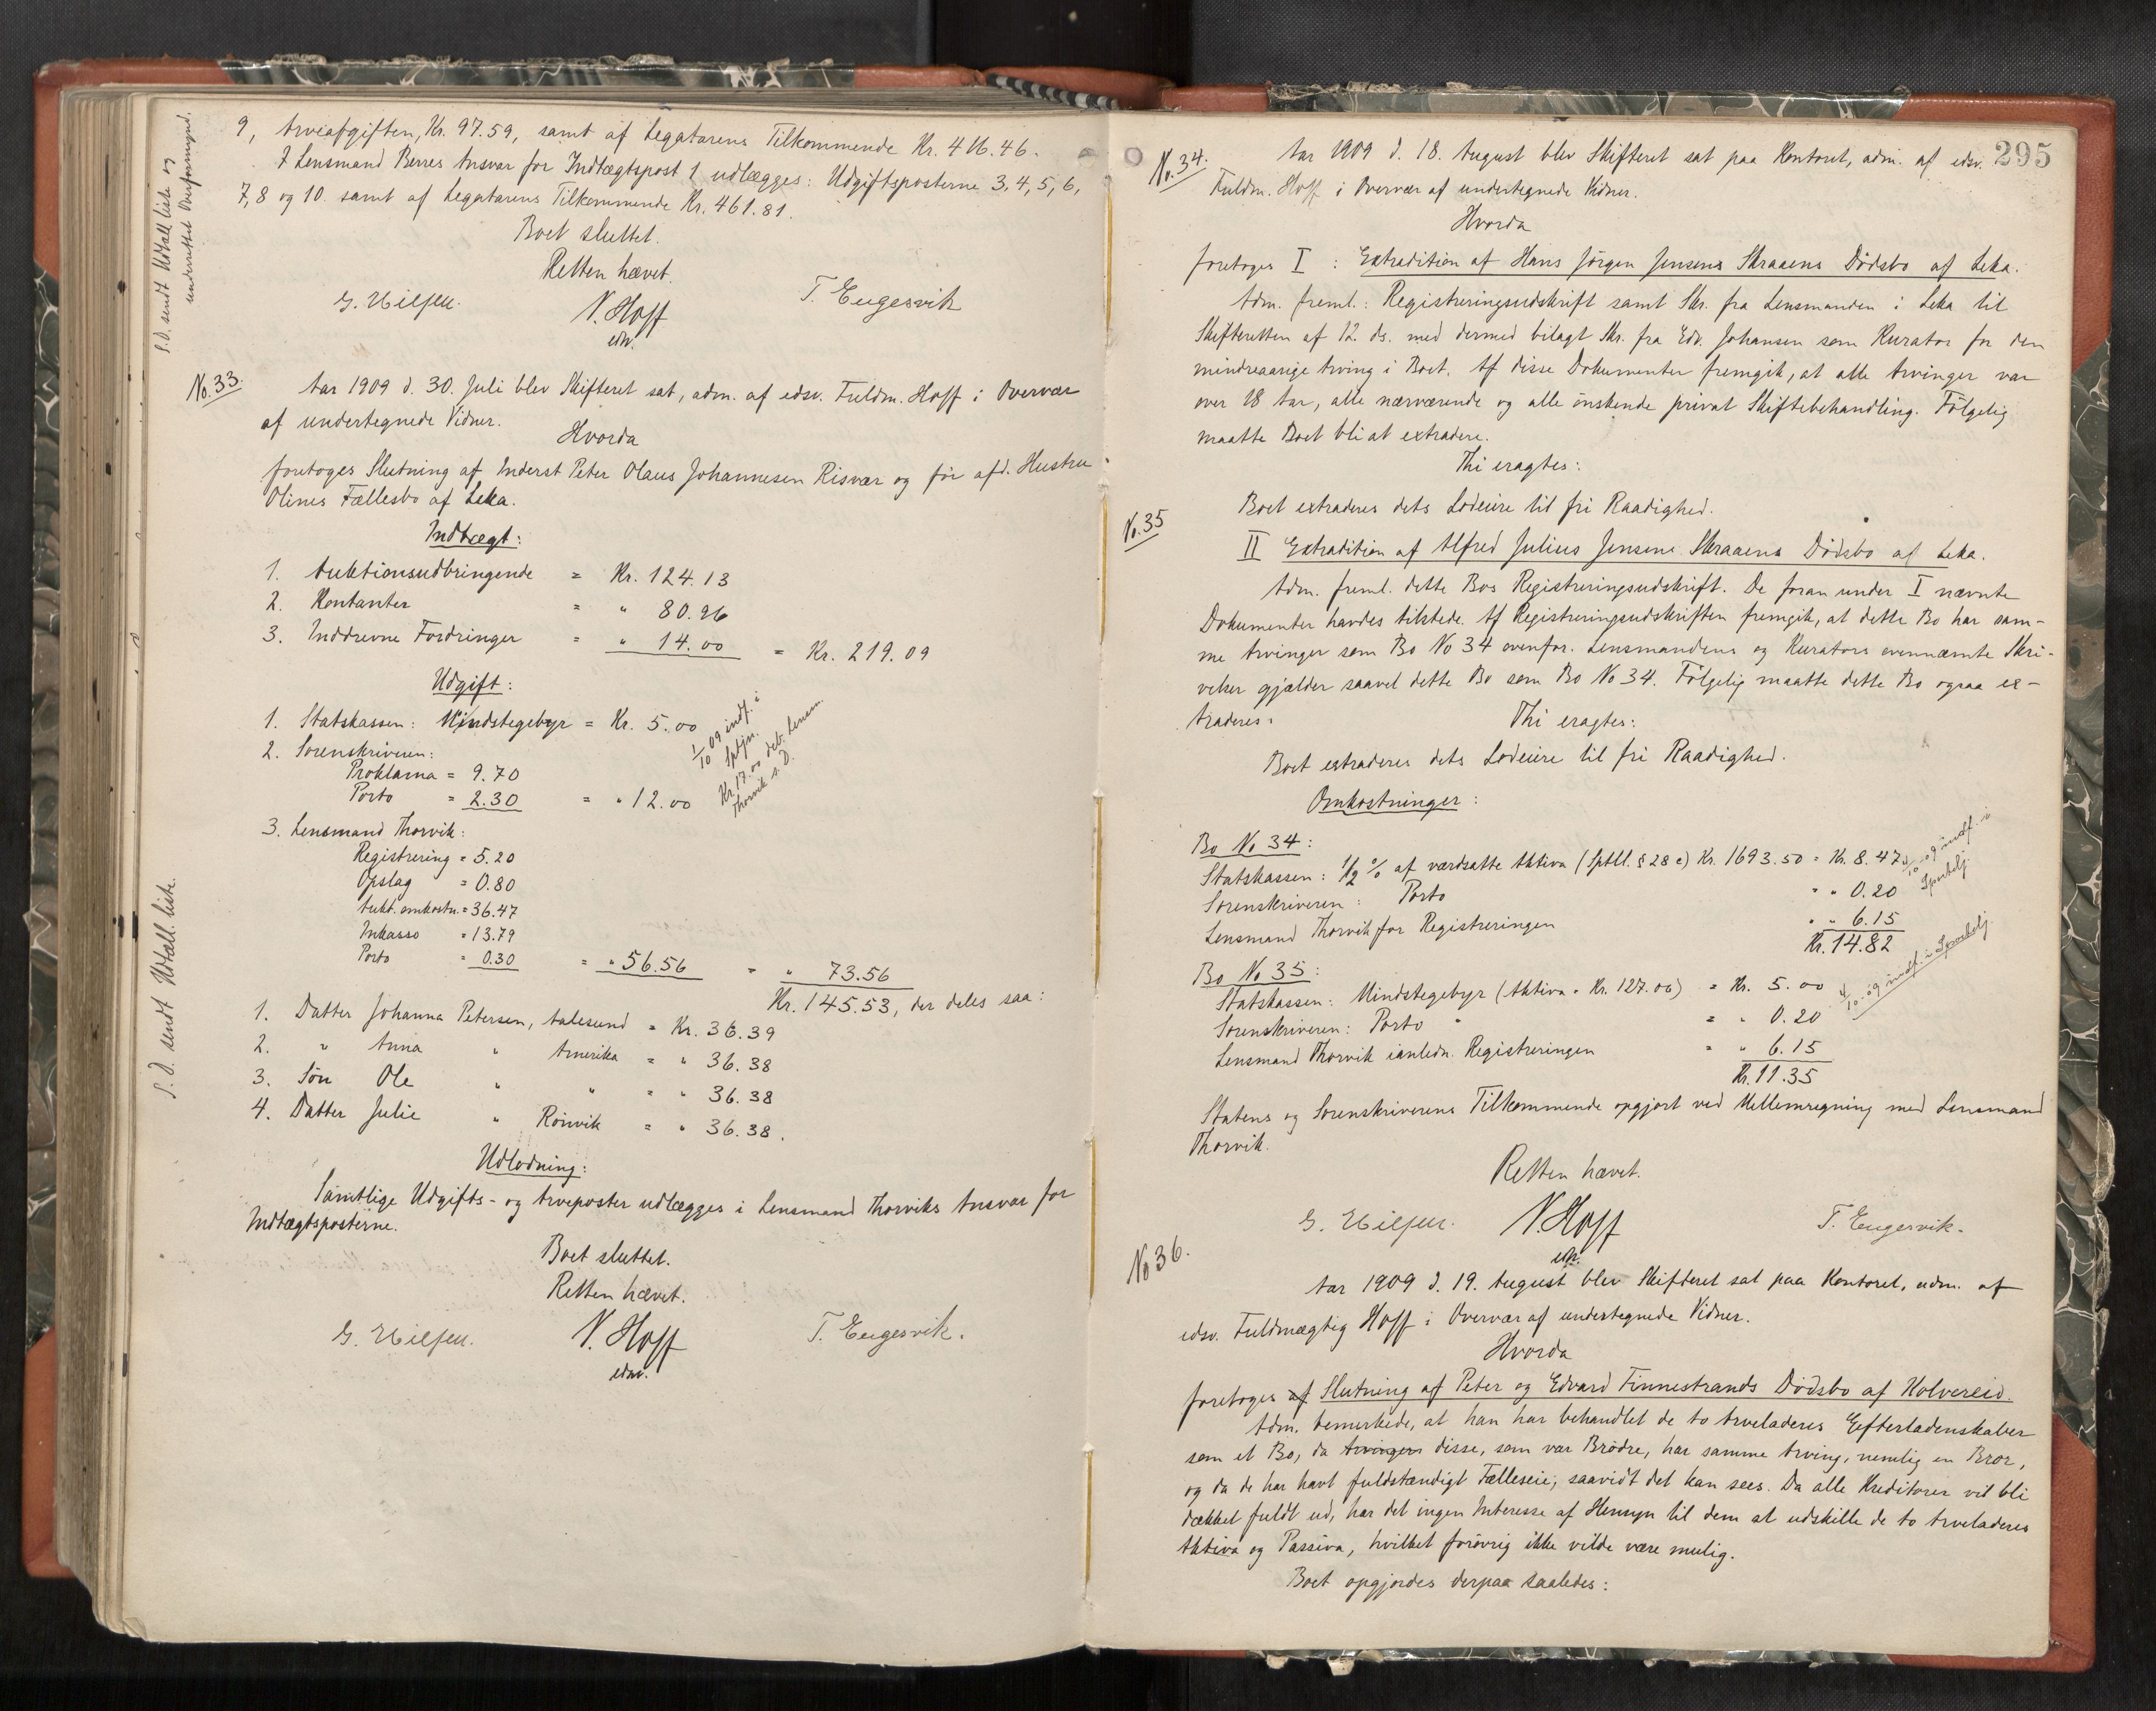 9, Arveafgiften, Kr. 97.59, samt af Legatarens Tilkommende Kr. 416.46.
I Lensmand Berres Ansvar for Indtægtspost 1 udlægges: Udgiftsposterne 3, 4, 5, 6,
7, 8 og 10. samt af Legatarens Tilkommende Kr. 461.81.
Boet sluttet.
Retten hævet.
N. Hoff
edsv.
T. Eugesvik
S. D. sendt Udtall. liste og
underrettet Overformynd.
No. 33.
Aar 1909 d. 30. Juli blev Skifteret sat, adm. af edsv. Fuldm. Hoff i Overvær
af undertegnede Vidner.
Hvorda
foretoges Slutning af Inderst Peter Olaus Johannesen Risvær og før afd. Hustru
Olines Fællesbo af Leka.
Indtægt:
1. Auktionsudbringende = Kr. 124.13
2. Kontanter = " 80.96
3. Inddrevne Fordringer = " 14.00 = Kr. 219.09
Udgift:
1. Statskassen: Mindstegebyr = Kr. 5.00
2. Sorenskriveren:
Proklama = 9.70
Porto = 2.30 = " 12.00
1/10 09 indf. i
Sptjn.
Kr. 17.00 deb. Lensm.
Thorvik s. D.
3. Lensmand Thorvik:
Registrering = 5.20
Opslag = 0.80
Aukt. omkostn. = 36.47
Inkasso = 13.79
Porto = 0.30 = " 56.56 = " 73.56
Kr. 145.53, der deles saa:
1. Datter Johanna Petersen, Aalesund = Kr. 36.39
2. " Anna " Amerika = " 36.38
3. Søn Ole " " = " 36.38
4. Datter Julie " Rörvik = " 36.38.
Udlodning:
Samtlige Udgifts- og Arveposter udlægges i Lensmand Thorviks Ansvar for
Indtægtsposterne.
Boet sluttet.
Retten hævet.
N. Hoff
edsv.
T. Eugesvik.
S. D. sendt Udtall. liste.
295
No. 34.
Aar 1909 d. 18. August blev Skifteret sat paa Kontoret, adm. af edsv.
Fuldm. Hoff i Overvær af undertegnede Vidner.
Hvorda
foretoges I : Extradition af Hans Jörgen Jensens Skraaens Dödsbo af Leka.
Adm. freml.: Registreringsudskrift samt Skr. fra Lensmanden i Leka til
Skifteretten af 12. ds. med dermed bilagt Skr. fra Edv. Johansen som Kurator for den
mindreaarige Arving i Boet. Af disse Dokumenter fremgik, at alle Arvinger var
over 18 Aar, alle nærværende og alle ønskende privat Skiftebehandling. Følgelig
maatte Boet bli at extradere.
Thi eragtes:
Boet extraderes dets Lodeiere til fri Raadighed.
No. 35
II Extradition af Alfred Julius Jensens Skraaens Dödsbo af Leka.
Adm. freml. dette Bos Registreringsudskrift. De foran under I nævnte
Dokumenter havdes tilstede. Af Registreringsudskriften fremgik, at dette Bo har sam-
me Arvinger som Bo No 34 ovenfor. Lensmandens og Kurators ovennævnte Skri-
velser gjælder saavel dette Bo som Bo No 34. Følgelig maatte dette Bo ogsaa ex-
traderes.
Thi eragtes:
Boet extraderes dets Lodeiere til fri Raadighed.
Omkostninger:
Bo No 34:
Statskassen: 1/2 % af værdsatte Aktiva (Sptll. § 28 c) Kr. 1693.50 = Kr. 8.47
Sorenskriveren: Porto = " 0.20
Lensmand Thorvik for Registreringen " " 6.15
Kr. 14.82
Bo No 35:
Statskassen: Mindstegebyr (Aktiva = Kr. 127.00) = Kr. 5.00
Sorenskriveren: Porto = " 0.20
Lensmand Thorvik ianledn. Registreringen = " 6.15
Kr. 11.35
Statens og Sorenskriverens Tilkommende opgjort ved Mellemregning med Lensmand
Thorvik.
Retten hævet.
N. Hoff
edsv.
T. Eugesvik.
No 36.
Aar 1909 d. 19. August blev Skifteret sat paa Kontoret, adm. af
edsv. Fuldmægtig Hoff i Overvær af undertegnede Vidner.
Hvorda
foretoges af Slutning af Peter og Edvard Finnestrands Dödsbo af Kolvereid.
Adm. bemerkede, at han har behandlet de to Arveladeres Efterladenskaber
som et Bo, da Arvingen disse, som var Brødre, har samme Arving, nemlig en Bror,
og da de har havt fuldstændigt Fælleseie, saavidt det kan sees. Da alle Kreditorer vil bli
dækket fuldt ud, har det ingen Interesse af Hensyn til dem at udskille de to Arveladeres
Aktiva og Passiva, hvilket forøvrig ikke vilde være mulig.
Boet opgjordes derpaa saaledes: